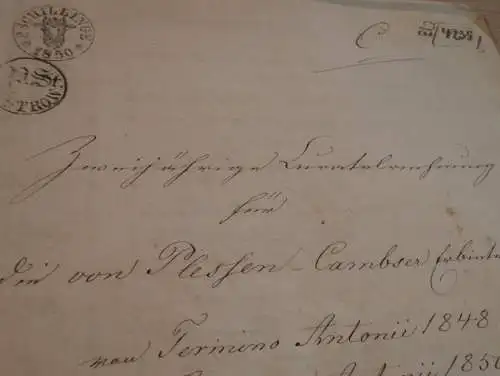 SCHILLINGE
1850
STROW
C
Zweijährige Curatelrechnung
für
die von Plessen-Cambser Erbinte
von Termino Antonii 1848
Antonii 1850